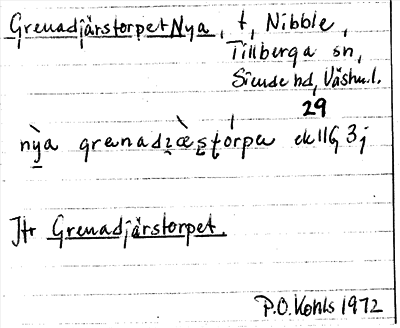 Grenadjärstorpet Nya, t, Nibble,
Tillberga sn,
Siende hd, Västm.l.
29
nỳa grenadʒæʂʈórpa ek 11G 3j
Jfr Grenadjärstorpet.
P.O. Kohls 1972